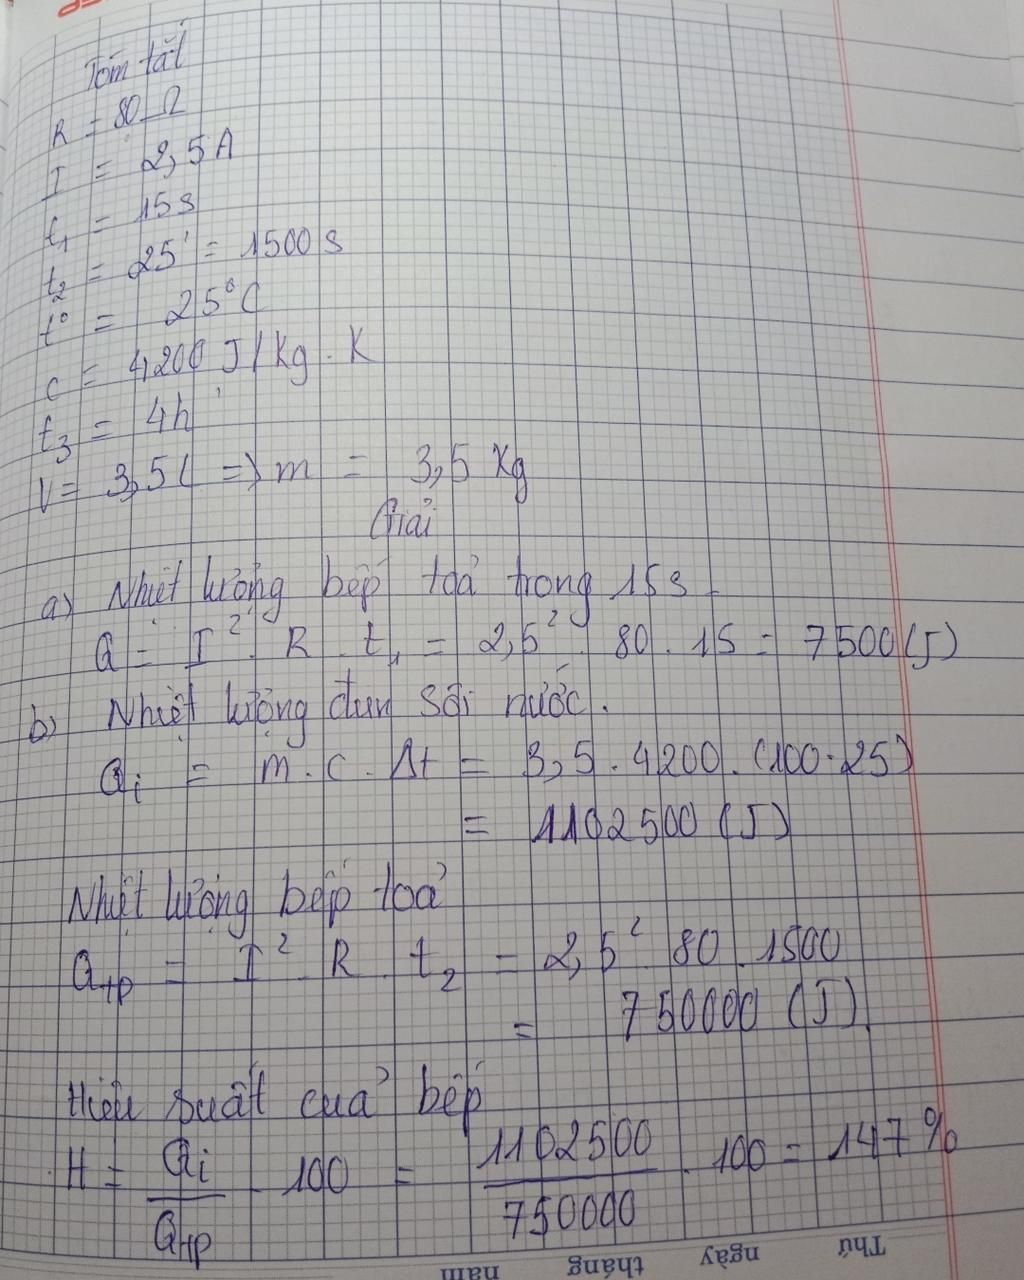 Tóm tắt
R = 80 Ω
I = 2,5A
t₁ = 15s
t₂ = 25' = 1500s
t° = 25°C
c = 4200 J/Kg.K
t₃ = 4h
V = 3,5l => m = 3,5 Kg
Giải
a) Nhiệt lượng bếp toả trong 15s
Q = I². R. t₁ = 2,5². 80. 15 = 7500 (J)
b) Nhiệt lượng đun sôi nước.
Qi = m.c.Δt = 3,5. 4200. (100-25)
= 1102500 (J)
Nhiệt lượng bếp toả
Qtp = I². R. t₂ = 2,5². 80. 1500
= 750000 (J)
Hiệu suất của bếp
H = Qi/Qtp . 100 = 1102500/750000 . 100 = 147%
Thứ ngày tháng năm